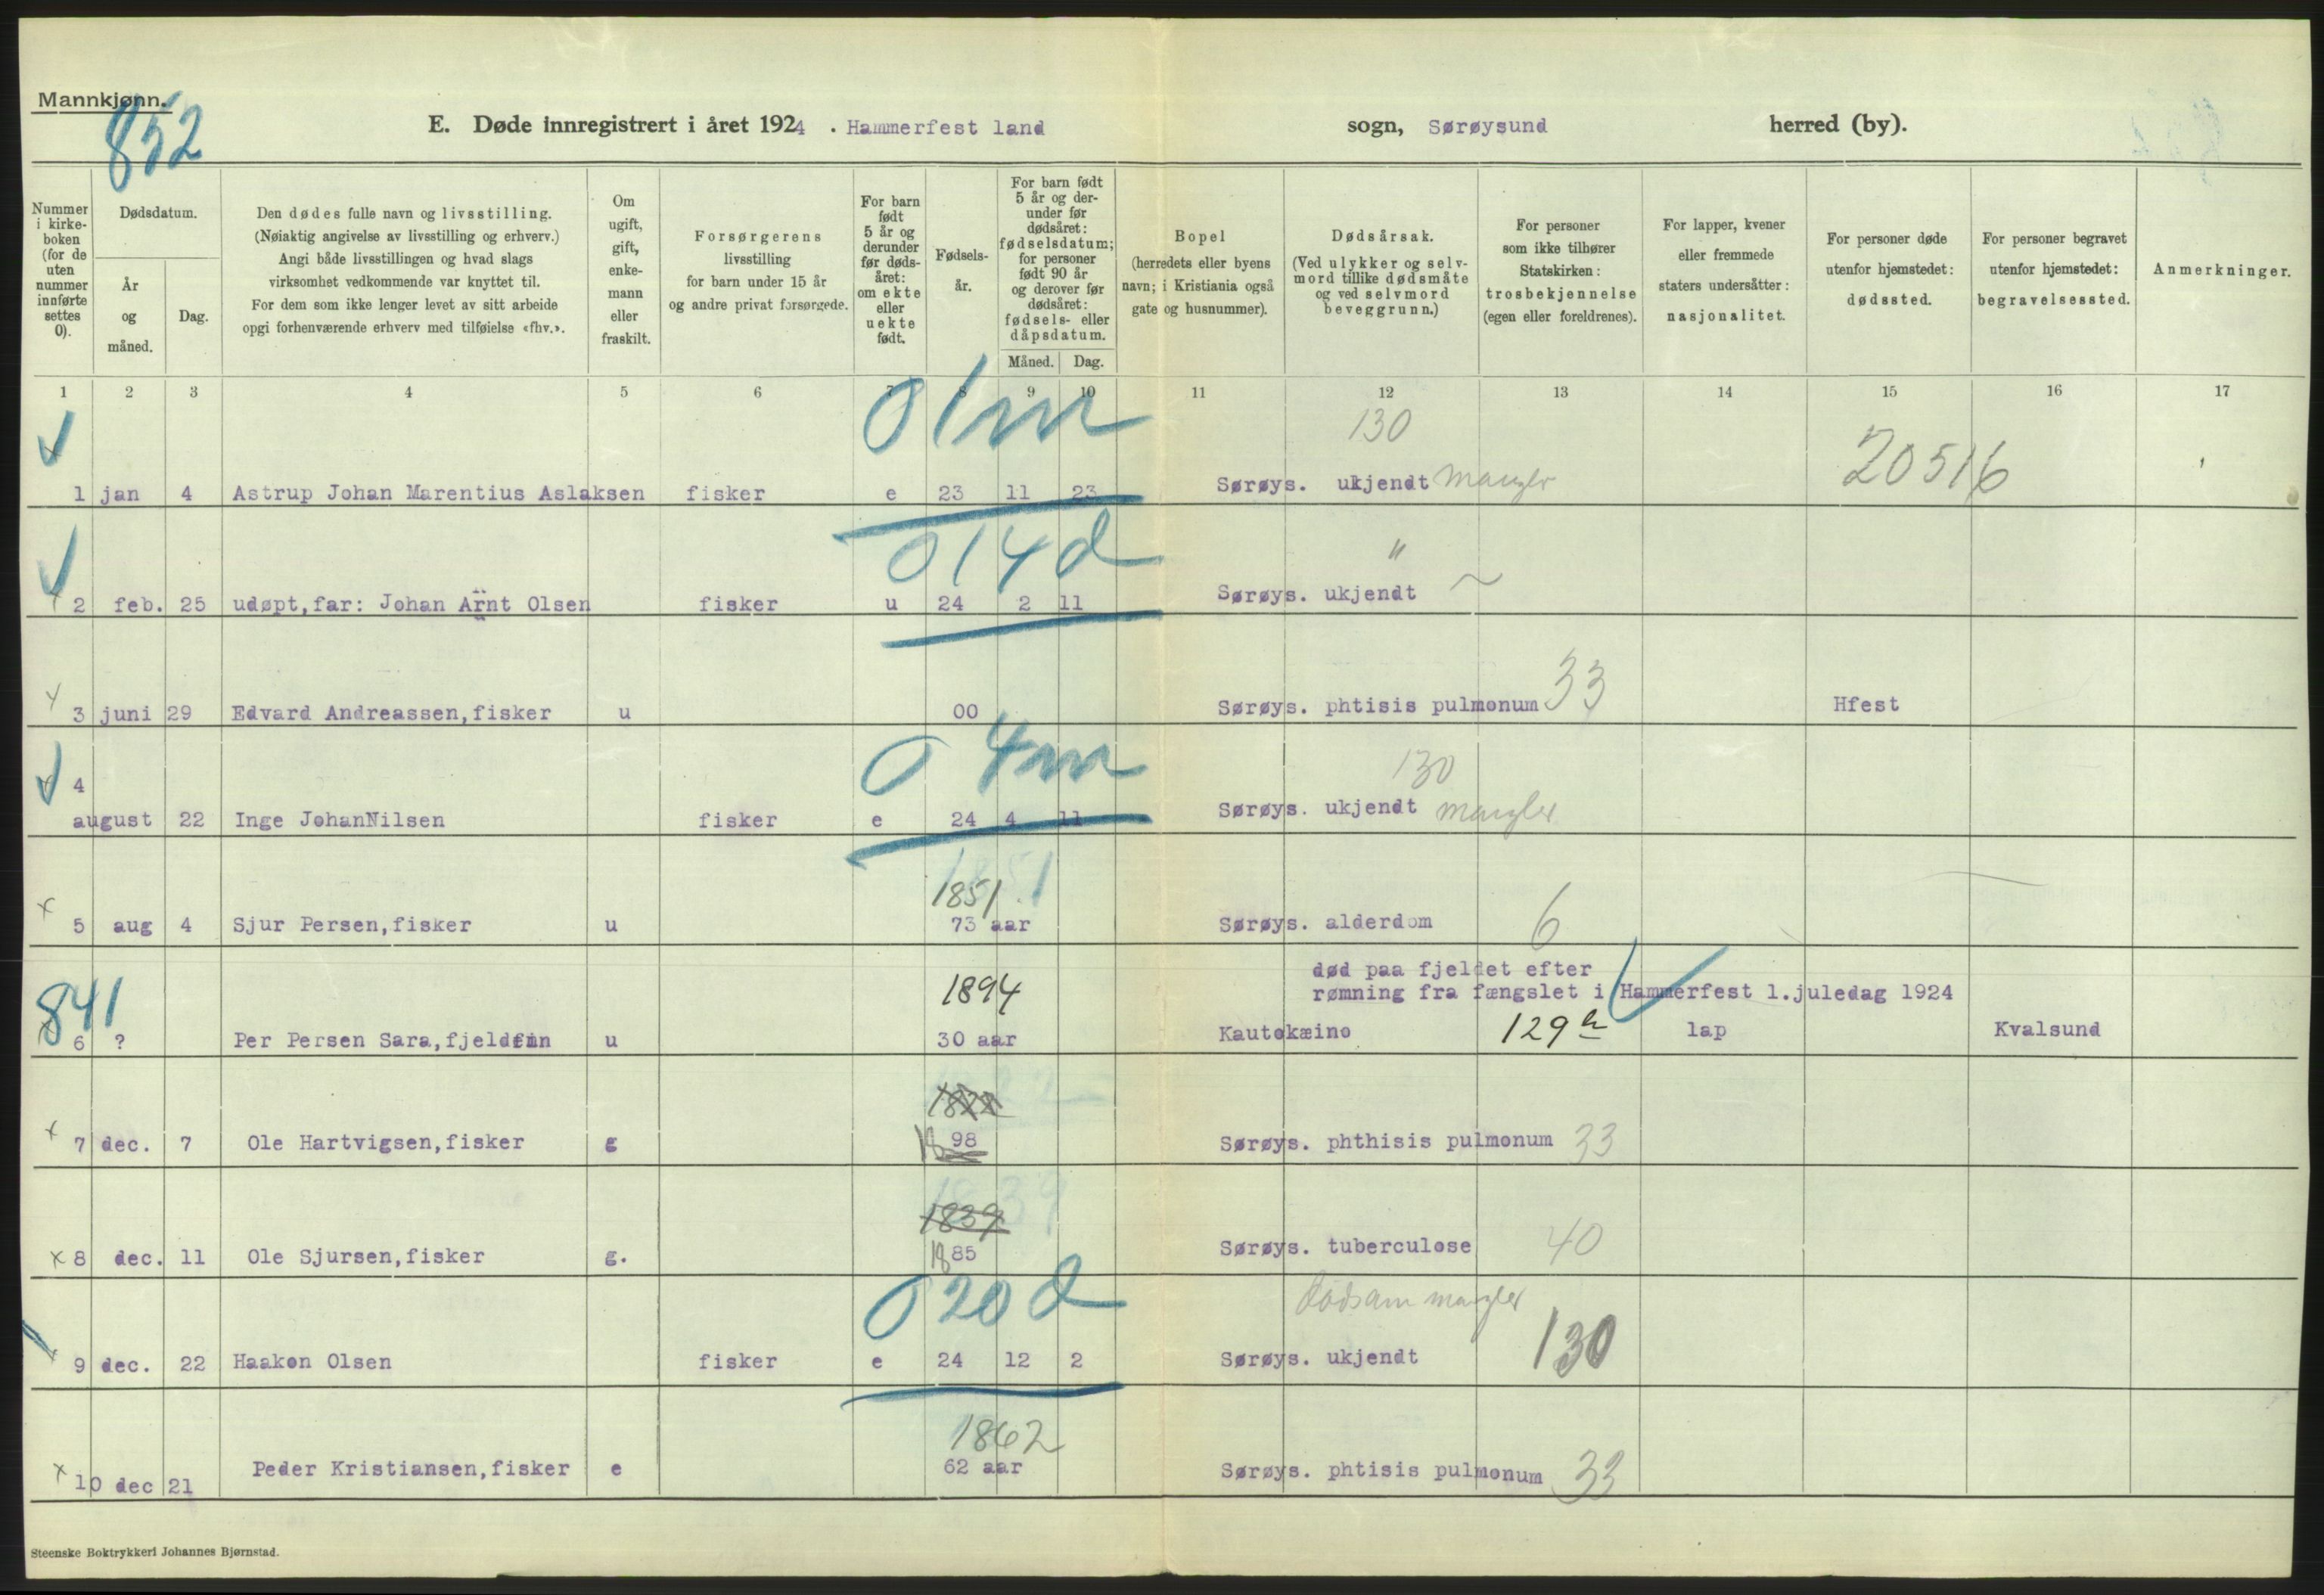 Mannkjønn.
852
E. Døde innregistrert i året 1924 . Hammerfest land sogn, Sørøysund herred (by).
Nummer i kirke-boken (for de uten nummer innførte settes 0).
Dødsdatum.
År og måned.
Dag.
Den dødes fulle navn og livsstilling.
(Nøiaktig angivelse av livsstilling og erhverv.)
Angi både livsstillingen og hvad slags
virksomhet vedkommende var knyttet til.
For dem som ikke lenger levet av sitt arbeide
opgi forhenværende erhverv med tilføielse «fhv.».
Om ugift, gift, enke-mann eller fraskilt.
Forsørgerens
livsstilling
for barn under 15 år
og andre privat forsørgede.
For barn født 5 år og derunder før døds-året: om ekte eller uekte født.
Fødsels-år.
For barn født 5 år og der-under før dødsåret: fødselsdatum; for personer født 90 år og derover før dødsåret: fødsels- eller dåpsdatum.
Måned. Dag.
Bopel
(herredets eller byens
navn; i Kristiania også
gate og husnummer).
Dødsårsak.
(Ved ulykker og selv-
mord tillike dødsmåte
og ved selvmord
beveggrunn.)
For personer
som ikke tilhører
Statskirken:
trosbekjennelse
(egen eller foreldrenes).
For lapper, kvener
eller fremmede
staters undersåtter:
nasjonalitet.
For personer døde
utenfor hjemstedet:
dødssted.
For personer begravet
utenfor hjemstedet:
begravelsessted.
Anmerkninger.
1 2 3 4 5 6 7 8 9 10 11 12 13 14 15 16 17
0 1m 130
1 jan 4 Astrup Johan Marentius Aslaksen fisker e 23 11 23 Sørøys. ukjendt mangler 20516
0 14d "
2 feb. 25 udøpt,far: Johan Arnt Olsen fisker u 24 2 11 Sørøys. ukjendt ~
3 juni 29 Edvard Andreassen,fisker u 00 Sørøys. phtisis pulmonum 33 Hfest
0 4m 130
4
august 22 Inge JohanNilsen fisker e 24 4 11 Sørøys. ukjendt mangler
1851
5 aug 4 Sjur Persen,fisker u 73 aar Sørøys. alderdom 6
841 1894 død paa fjeldet efter
rømning fra fængslet i Hammerfest 1.juledag 1924
6 ? Per Persen Sara,fjeldfin u 30 aar Kautokæino 129 lap Kvalsund
7 dec. 7 Ole Hartvigsen,fisker g 1898 Sørøys. phthisis pulmonum 33
1839
8 dec. 11 Ole Sjursen,fisker g. 1885 Sørøys. tuberculose 40
0 20 d mangler
9 dec. 22 Haakon Olsen fisker e 24 12 2 Sørøys. ukjendt 130
1862
10 dec 21 Peder Kristiansen,fisker e 62 aar Sørøys. phtisis pulmonum 33
Steenske Boktrykkeri Johannes Bjørnstad.